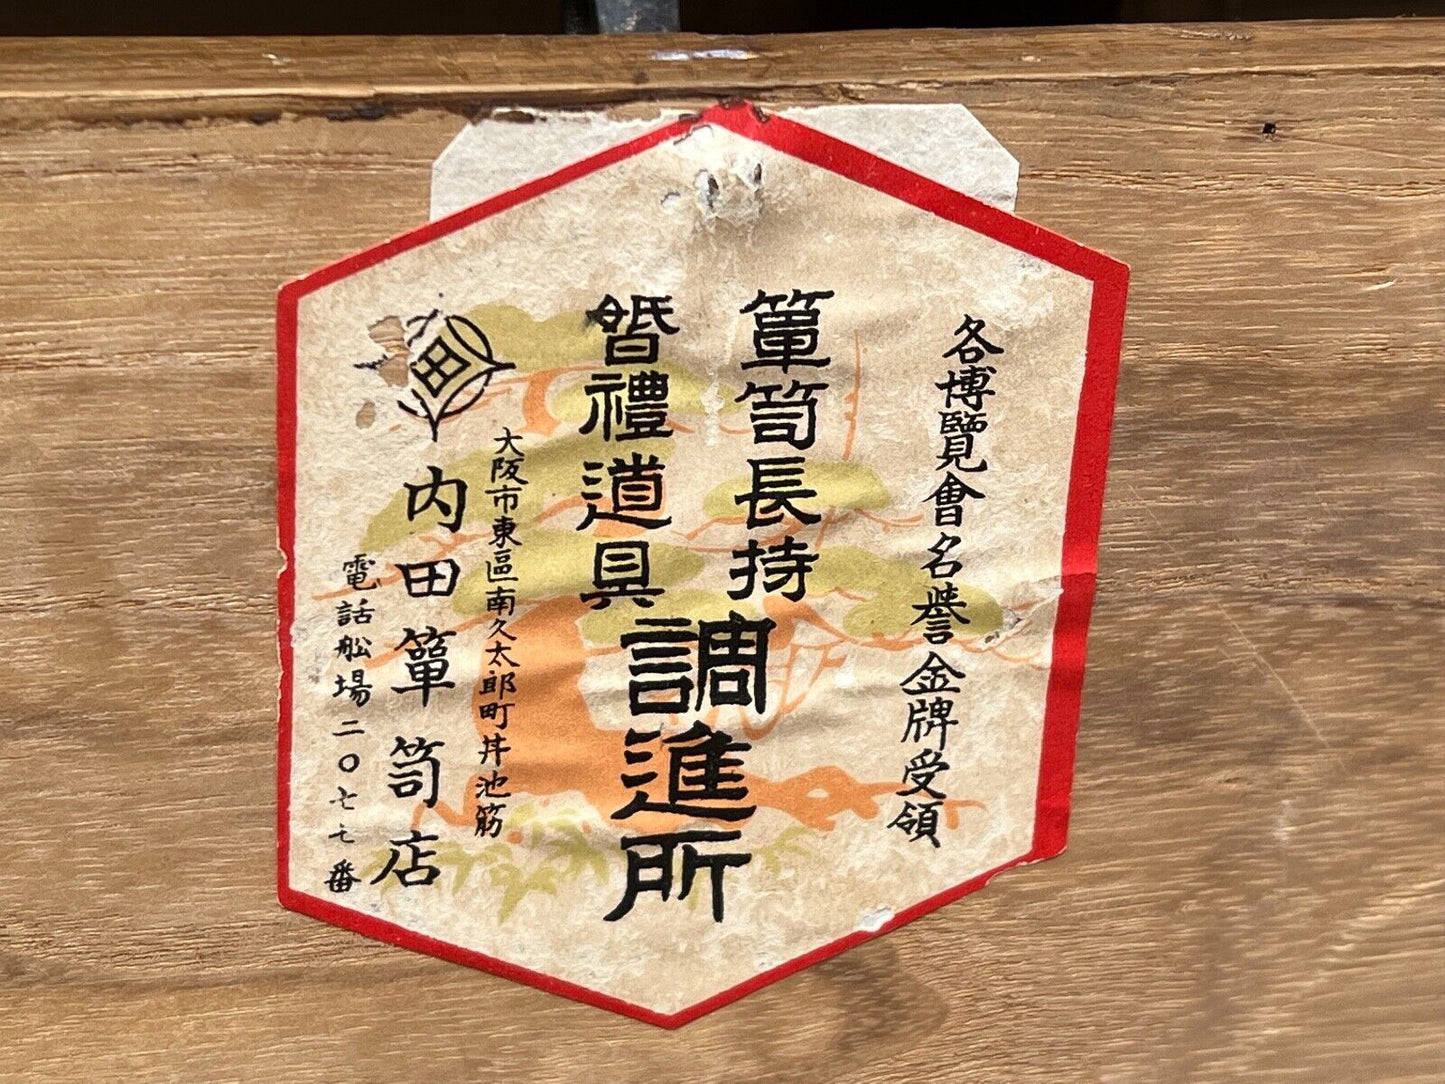 各博覽會名譽金牌受領
簞笥長持
婚禮道具
調進所
大阪市東區南久太郎町丼池筋
田
内田簞笥店
電話船場二〇七七番